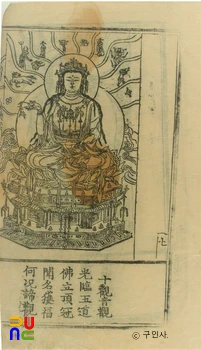 十觀音觀
光臨五道
佛立頂冠
聞名獲福
何況諦觀
© 구인사.